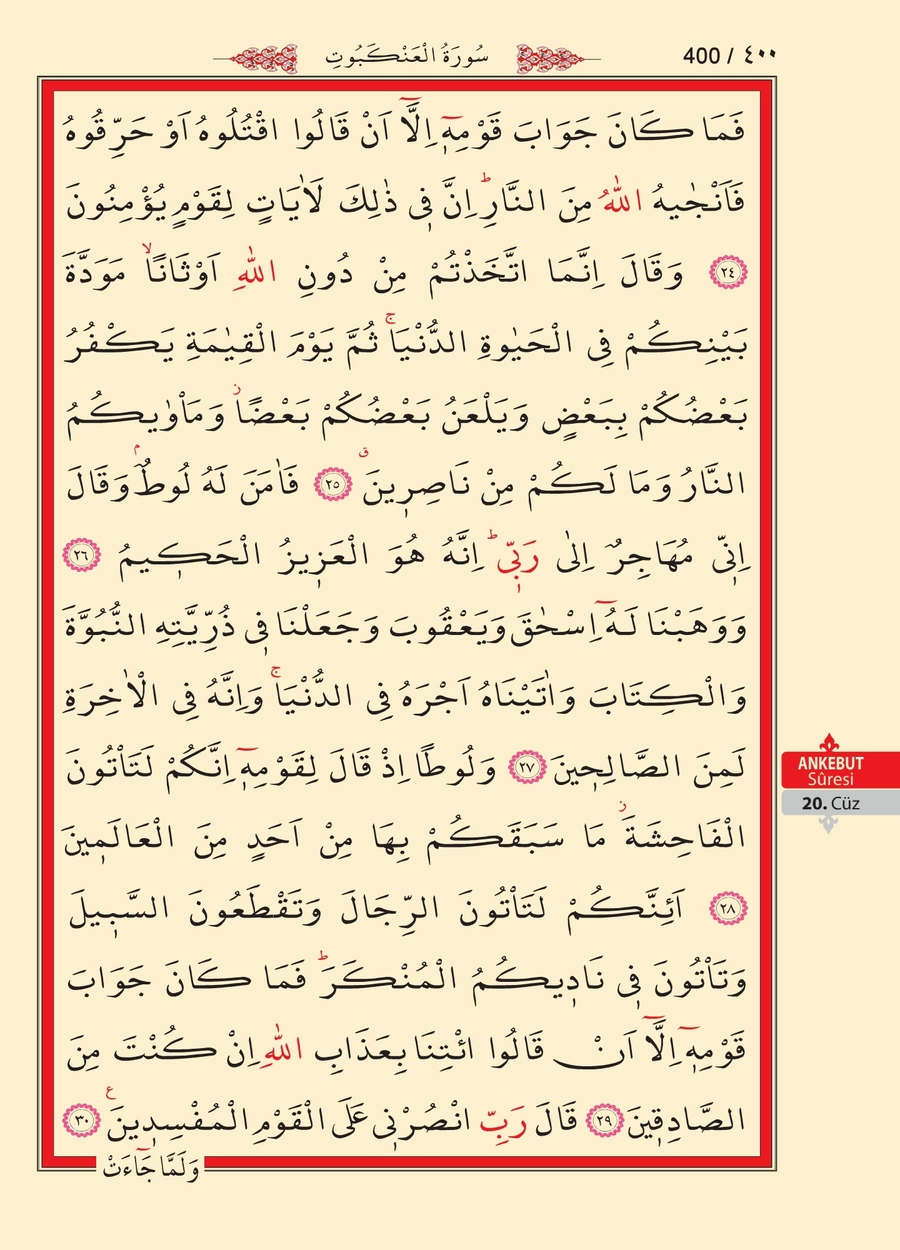 سُورَةُ الْعَنْكَبُوتِ
400 / ٤٠٠
فَمَا كَانَ جَوَابَ قَوْمِه۪ٓ اِلَّٓا اَنْ قَالُوا اقْتُلُوهُ اَوْ حَرِّقُوهُ
فَاَنْجٰيهُ اللّٰهُ مِنَ النَّارِۜ اِنَّ ف۪ي ذٰلِكَ لَاٰيَاتٍ لِقَوْمٍ يُؤْمِنُونَ
﴿٢٤﴾ وَقَالَ اِنَّمَا اتَّخَذْتُمْ مِنْ دُونِ اللّٰهِ اَوْثَانًاۙ مَوَدَّةَ
بَيْنِكُمْ فِي الْحَيٰوةِ الدُّنْيَاۚ ثُمَّ يَوْمَ الْقِيٰمَةِ يَكْفُرُ
بَعْضُكُمْ بِبَعْضٍ وَيَلْعَنُ بَعْضُكُمْ بَعْضًاۘ وَمَاْوٰيكُمُ
النَّارُ وَمَا لَكُمْ مِنْ نَاصِر۪ينَۗ ﴿٢٥﴾ فَاٰمَنَ لَهُ لُوطٌۢ وَقَالَ
اِنّ۪ي مُهَاجِرٌ اِلٰى رَبّ۪يۜ اِنَّهُ هُوَ الْعَز۪يزُ الْحَك۪يمُ ﴿٢٦﴾
وَوَهَبْنَا لَهُٓ اِسْحٰقَ وَيَعْقُوبَ وَجَعَلْنَا ف۪ي ذُرِّيَّتِهِ النُّبُوَّةَ
وَالْكِتَابَ وَاٰتَيْنَاهُ اَجْرَهُ فِي الدُّنْيَاۚ وَاِنَّهُ فِي الْاٰخِرَةِ
لَمِنَ الصَّالِح۪ينَ ﴿٢٧﴾ وَلُوطًا اِذْ قَالَ لِقَوْمِه۪ٓ اِنَّكُمْ لَتَاْتُونَ
الْفَاحِشَةَۘ مَا سَبَقَكُمْ بِهَا مِنْ اَحَدٍ مِنَ الْعَالَم۪ينَ
﴿٢٨﴾ اَئِنَّكُمْ لَتَاْتُونَ الرِّجَالَ وَتَقْطَعُونَ السَّب۪يلَ
وَتَاْتُونَ ف۪ي نَاد۪يكُمُ الْمُنْكَرَۜ فَمَا كَانَ جَوَابَ
قَوْمِه۪ٓ اِلَّٓا اَنْ قَالُوا ائْتِنَا بِعَذَابِ اللّٰهِ اِنْ كُنْتَ مِنَ
الصَّادِق۪ينَ ﴿٢٩﴾ قَالَ رَبِّ انْصُرْن۪ي عَلَى الْقَوْمِ الْمُفْسِد۪ينَ۟ ﴿٣٠﴾
وَلَمَّا جَٓاءَتْ
ANKEBUT
Sûresi
20. Cüz